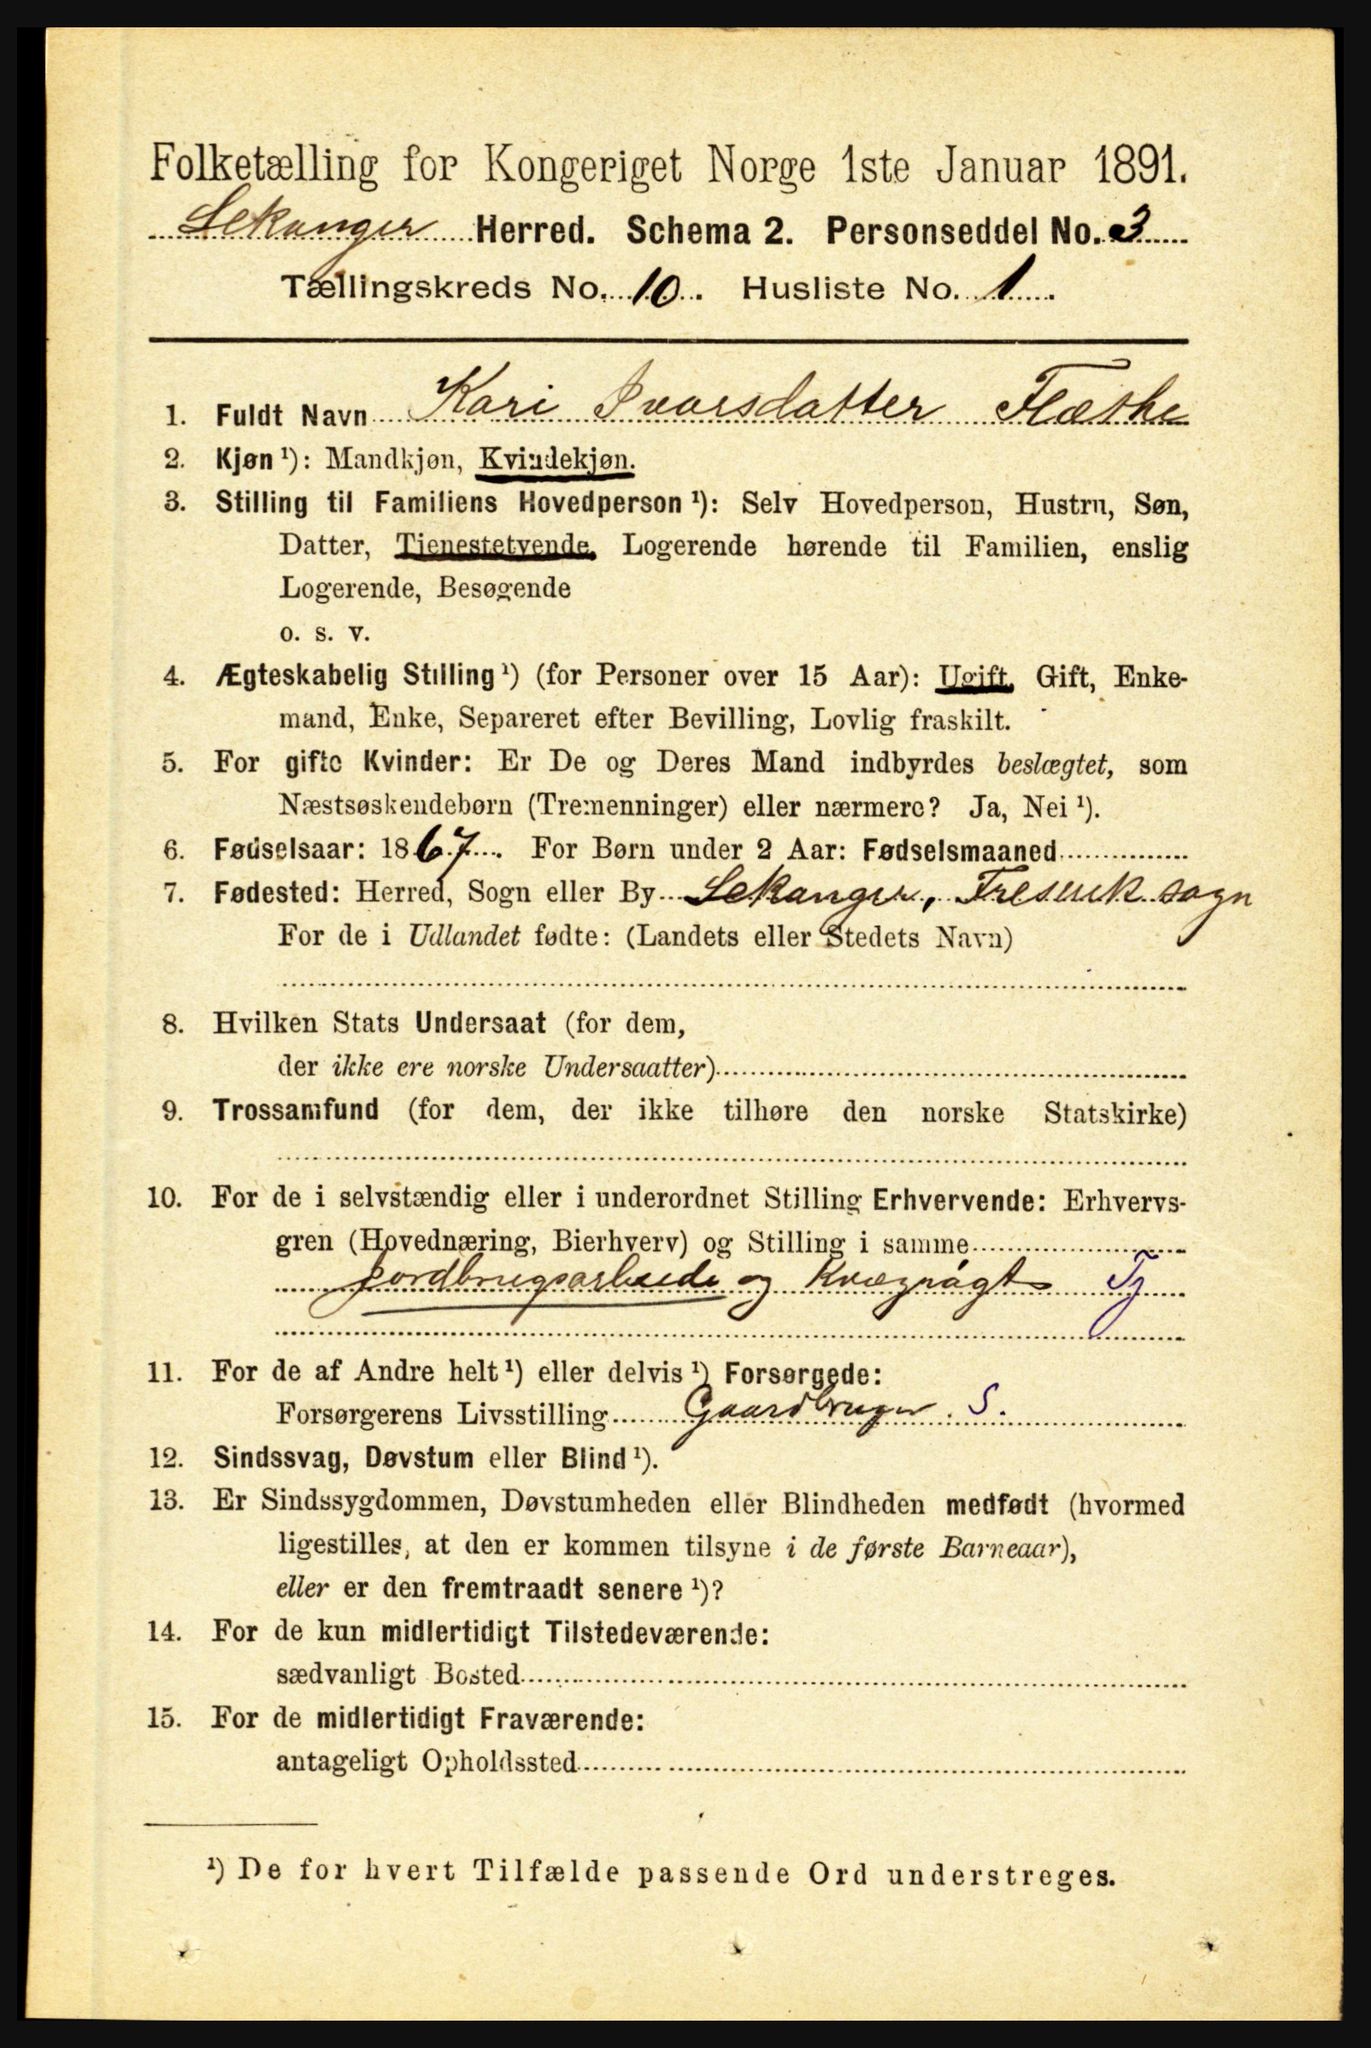 Folketælling for Kongeriget Norge 1ste Januar 1891.
Lekanger Herred. Schema 2. Personseddel No. 3
Tællingskreds No. 10. Husliste No. 1.
1. Fuldt Navn Kari Ivarsdatter Flæthe
2. Kjøn ¹): Mandkjøn, Kvindekjøn.
3. Stilling til Familiens Hovedperson ¹): Selv Hovedperson, Hustru, Søn,
Datter, Tjenestetyende, Logerende hørende til Familien, enslig
Logerende, Besøgende
o. s. v.
4. Ægteskabelig Stilling ¹) (for Personer over 15 Aar): Ugift, Gift, Enke-
mand, Enke, Separeret efter Bevilling, Lovlig fraskilt.
5. For gifte Kvinder: Er De og Deres Mand indbyrdes beslægtet, som
Næstsøskendebørn (Tremenninger) eller nærmere? Ja, Nei ¹).
6. Fødselsaar: 1867. For Børn under 2 Aar: Fødselsmaaned
7. Fødested: Herred, Sogn eller By Lekanger, Fresvik sogn
For de i Udlandet fødte: (Landets eller Stedets Navn)
8. Hvilken Stats Undersaat (for dem,
der ikke ere norske Undersaatter)
9. Trossamfund (for dem, der ikke tilhøre den norske Statskirke)
10. For de i selvstændig eller i underordnet Stilling Erhvervende: Erhvervs-
gren (Hovednæring, Bierhverv) og Stilling i samme
Jordbrugsarbeide og Kvægrøgt Tj
11. For de af Andre helt ¹) eller delvis ¹) Forsørgede:
Forsørgerens Livsstilling Gaardbruger. S.
12. Sindssvag, Døvstum eller Blind ¹).
13. Er Sindssygdommen, Døvstumheden eller Blindheden medfødt (hvormed
ligestilles, at den er kommen tilsyne i de første Barneaar),
eller er den fremtraadt senere ¹)?
14. For de kun midlertidigt Tilstedeværende:
sædvanligt Bosted
15. For de midlertidigt Fraværende:
antageligt Opholdssted
¹) De for hvert Tilfælde passende Ord understreges.